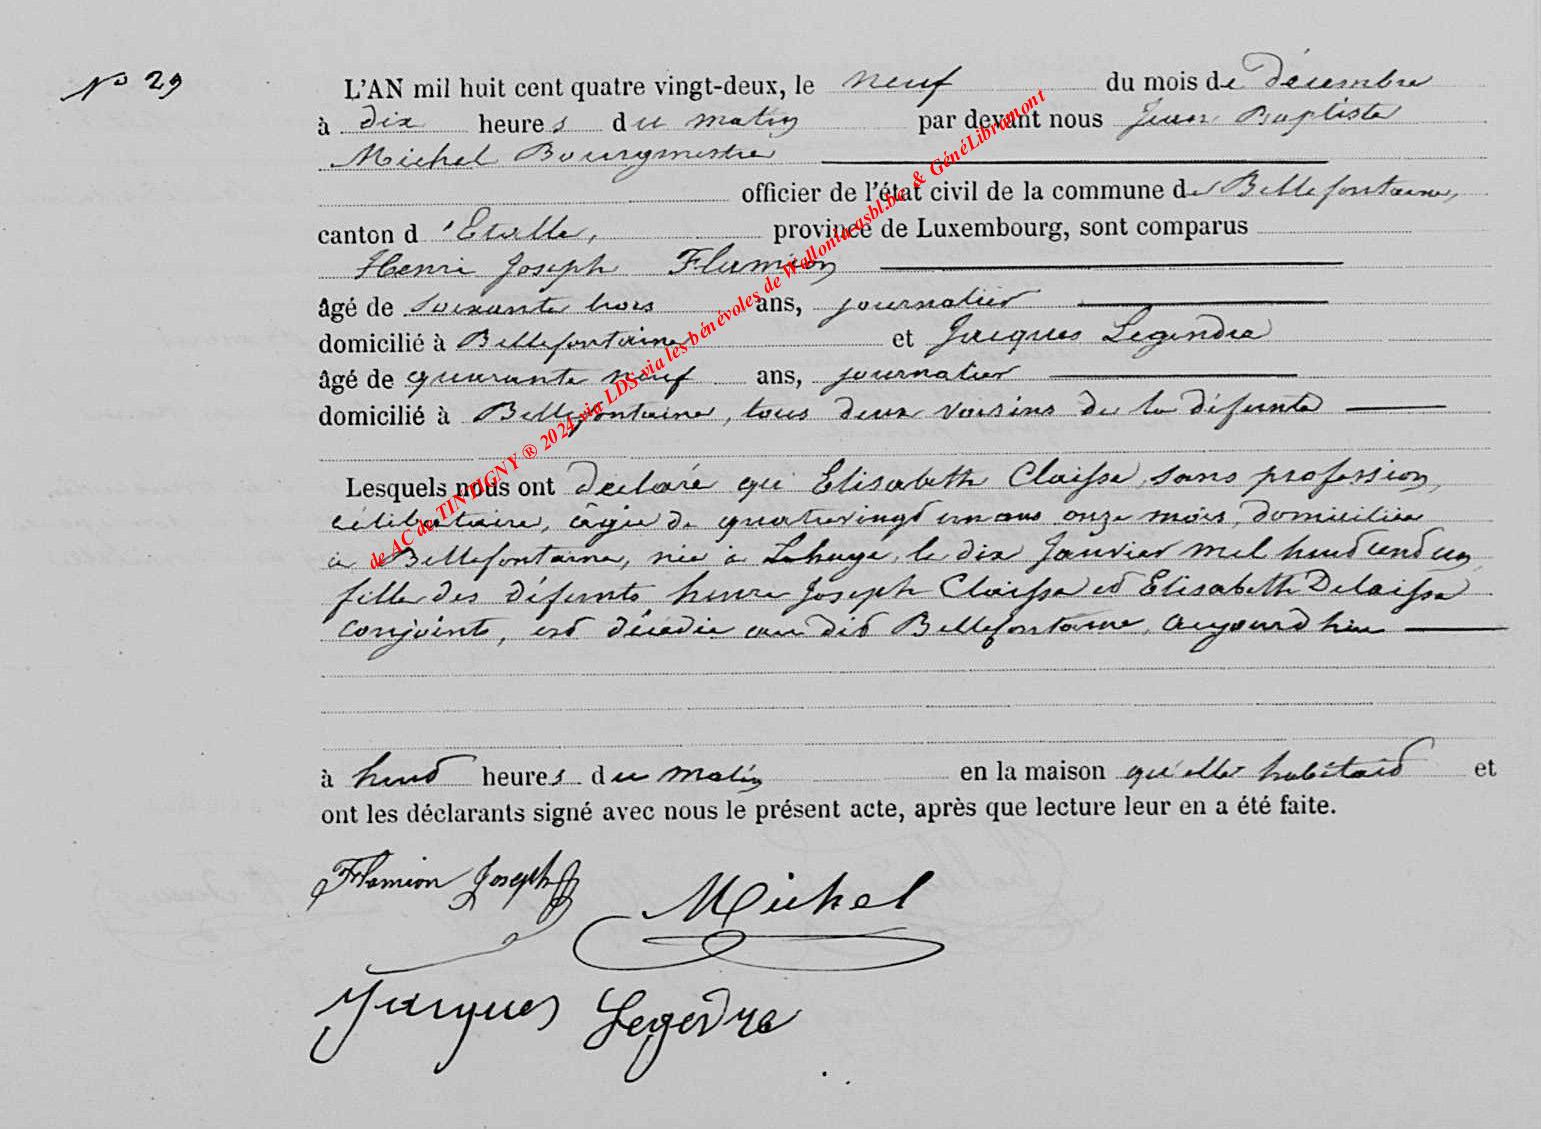 No 29
L'AN mil huit cent quatre vingt-deux, le neuf du mois de décembre
à dix heures du matin par devant nous Jean Baptiste
Michel Bourgmestre
officier de l'état civil de la commune de Bellefontaine,
canton d'Etalle, province de Luxembourg, sont comparus
Henri Joseph Flamion
âgé de soixante trois ans, journalier
domicilié à Bellefontaine et Jacques Legendre
âgé de quarante neuf ans, journalier
domicilié à Bellefontaine, tous deux voisins de la défunte
Lesquels nous ont declaré qu Elisabeth Claisse, sans profession,
célibataire, âgée de quatrevingt un ans onze mois, domiciliée
à Bellefontaine, née à Lahage, le dix Janvier mil huit cent un,
fille des défunts henri Joseph Claisse et Elisabeth Delaisse
conjoints, est décédée au dit Bellefontaine, aujourd hui
à huit heures du matin en la maison qu'elle habitait et
ont les déclarants signé avec nous le présent acte, après que lecture leur en a été faite.
Flamion Joseph
Michel
Jacques Legedre
de AC de TINTIGNY ® 2024 via LDS via les bénévoles de Wallonia asbl.be & GénéLibramont